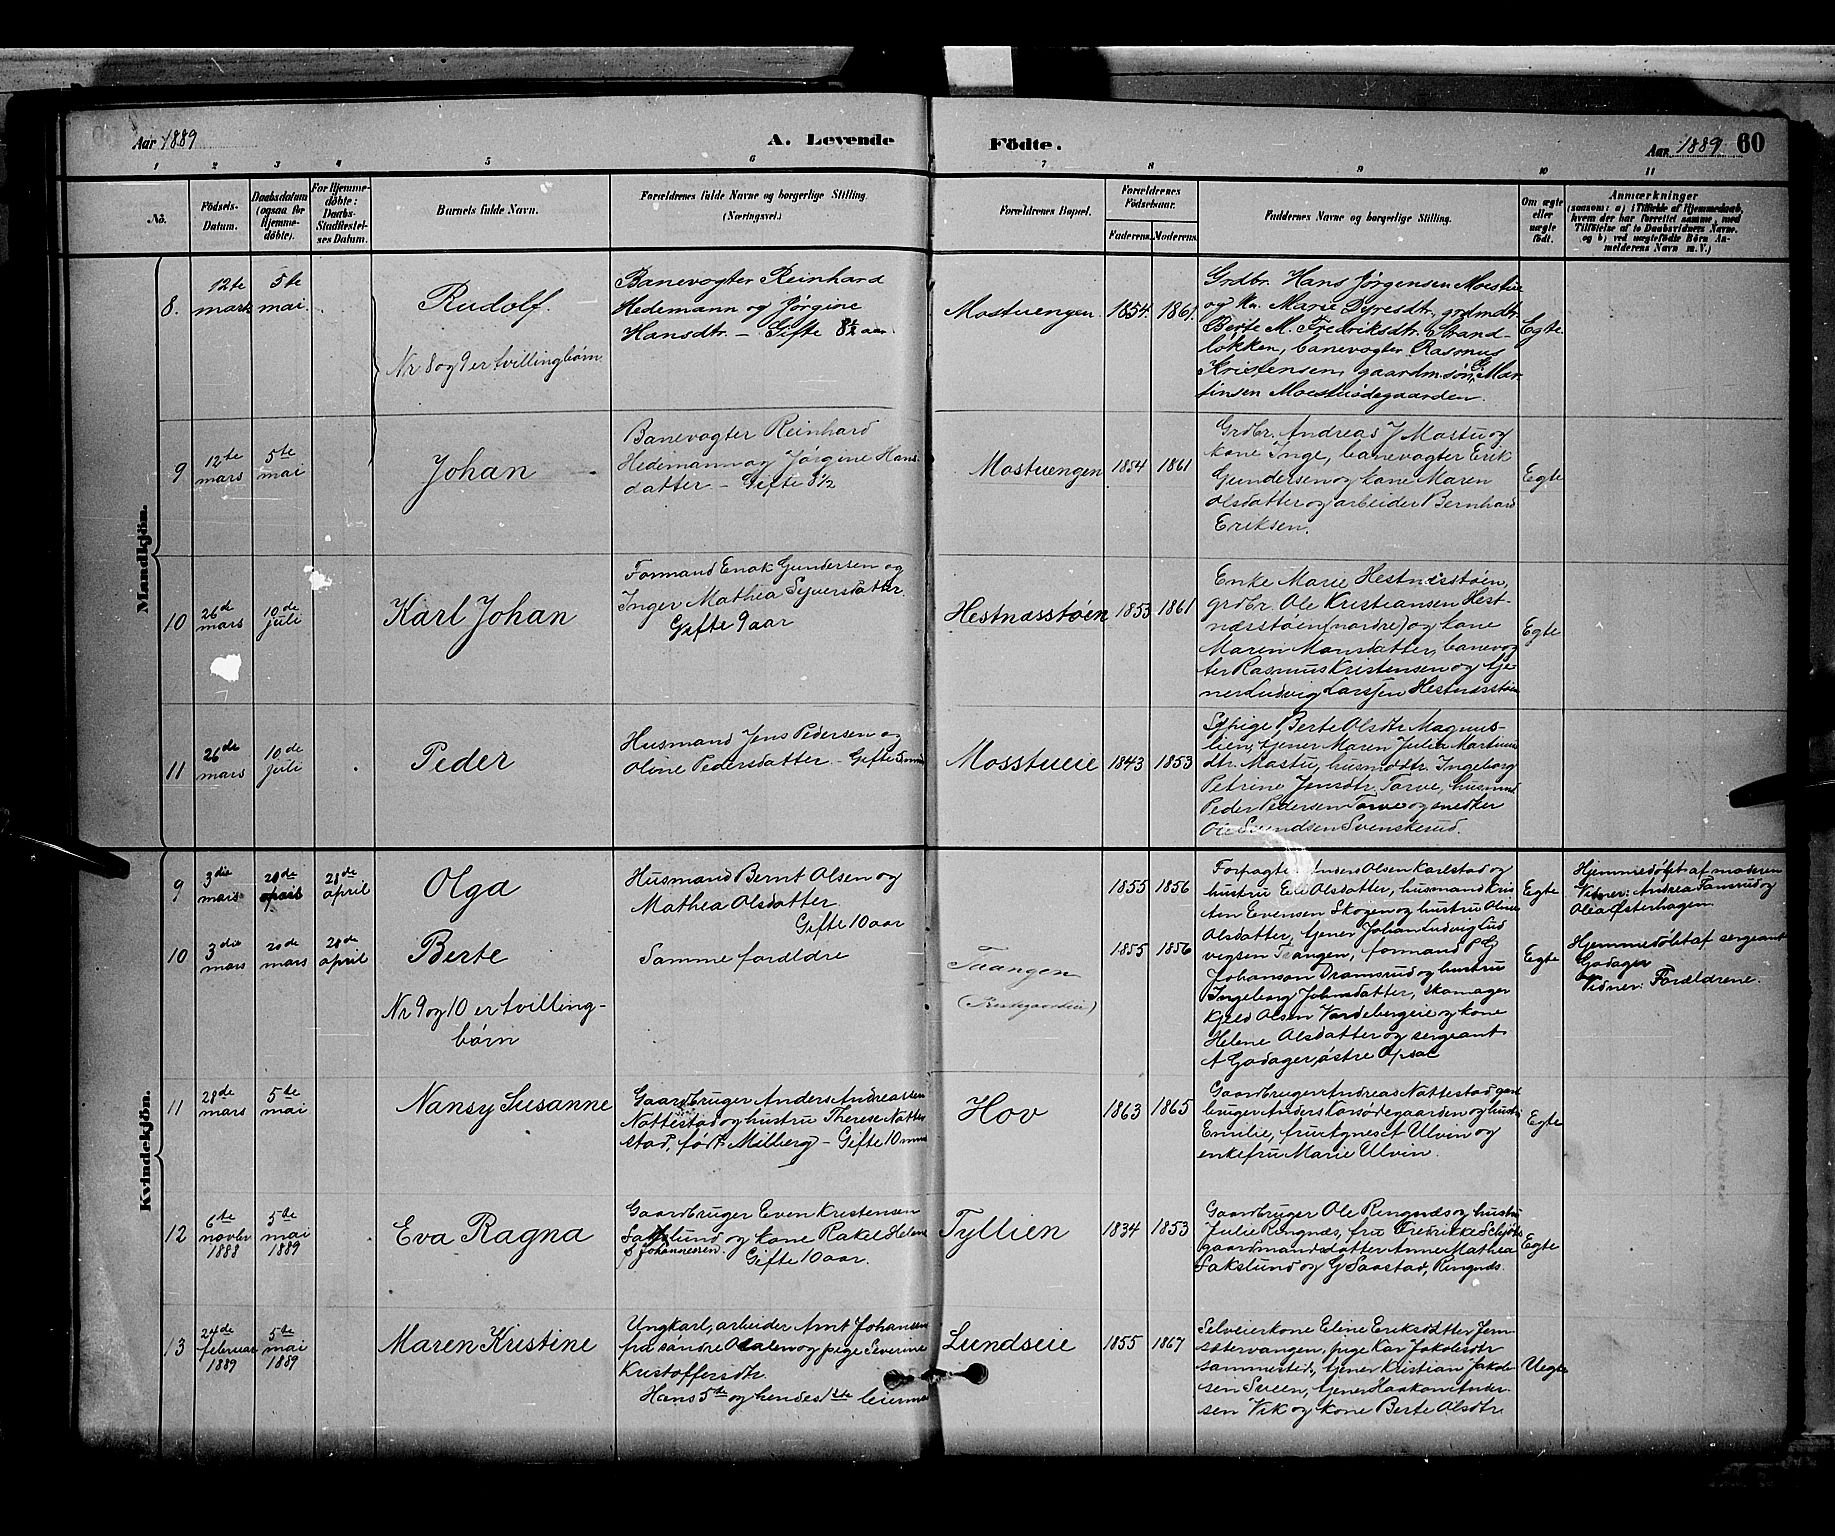 Aar 1889
A. Levende
Födte.
Aar 1889 60
1 2 3 4 5 6 7 8 9 10 11
No.
Födsels-
Datum.
Daabsdatum
(ogsaa for
Hjemme-
döbte).
For Hjemme-
döbte:
Daabs-
Stadfæstel-
ses Datum.
Barnets fulde Navn.
Forældrenes fulde Navne og borgerlige Stilling.
(Næringsvei.)
Forældrenes Bopæl.
Forældrenes
Födselsaar.
Faderens. Moderens.
Faddernes Navne og borgerlige Stilling.
Om ægte
eller
uægte
födt.
Anmærkninger
(saasom: a) i Tilfælde af Hjemmedaab,
hvem der har forrettet samme, med
Tilföielse af to Daabsvidners Navne.
og b) ved uægtefödte Börn An-
melderens Navn m. V.)
Mandkjön.
8.
12te
mars
5te
mai
Rudolf.
Nr 8 og 9 er tvillingbørn
Banevogter Reinhard
Hedemann og Jørgine
Hansdtr. – Gifte 8½ aar
Mostuengen
1854. 1861.
Grdbr. Hans Jørgensen Moestue
og Kn. Marie Dyresdtr. grdmdtr.
Berte M. Fredriksdtr. Strand-
løkken, banevogter Rasmus
Kristensen, gaardm.søn G. Mar
tinsen Moestuødegaarden.
Egte
9
12te
mars
5te
mai
Johan
Banevogter Reinhard
Hedemann og Jørgine Hans-
datter – Gifte 8½
Mostuengen
1854 1861
Grdbr. Andreas J Mostu og
kone Inge, banevogter Erik
Gundersen og kone Maren
Olsdatter og arbeider Bernhard
Eriksen.
Egte
10
26de
mars
10de
juli
Karl Johan
Formand Enok Gundersen og
Inger Mathea Syversdatter
Gifte 9 aar
Hestnæsstøen
1853 1861
Enke Marie Hestnæsstøen,
grdbr. Ole Kristiansen Hest-
næsstøen (nordre) og kone
Maren Mansdatter, banevog
ter Rasmus Kristensen og tje
ner Ludvig Larssen Hestnæsstøen
Egte
11
26de
mars
10de
juli
Peder
Husmand Jens Pedersen og
Oline Pedersdatter. – Gifte 5
Mosstueie
1843 1853
Sypige Berte Olsdtr Magnus-
lien, tjener Maren Julie
dtr. Mostu, husmdtr. Ingeborg
Petrine Jensdtr. Torve, husmnd
Peder Pedersen Torve og snedker
Ole Svendsen Svenskerud.
Kvindekjön.
9
3die
mars
20de
april
28de
april
Olga
Husmand Bernt Olsen og
Mathea Olsdatter.
Gifte 10 aar
1855 1856
Forpagter Anders Olsen Karlstad og
hustru Olsdatter, husmand Kris
ten Evensen Skogen og hustru Oline
Olsdatter, tjener Johan Ludvig Lud
vigsen Tangen, formand P G
Johanson Dramsrud og hustru
Ingeborg Johnsdatter, skomager
Kjeld Olsen Vardebergeie og kone
Helene Olsdatter og sergeant
A Godager, østre Opsal
Egte
Hjemmedøbt af moderen
Vidner: Andrea Tansrud og
Olea Østerhagen.
10
3die
mars
20de
mars
28de
april
Berte
Nr 9 og 10 er tvilling-
børn
Samme forældre
Taangen
(Prestegaardseie)
1855 1856
Egte
Hjemmedøbt af sergeant
Godager
Vidner: Forældrene.
11
28de
mars
5te
mai
Nansy Susanne
Gaardbruger Anders Andreassen
Nottestad og hustru Therese Notte
stad, født Milberg – Gifte 10
Hov
1863 1865
Gaardbruger Andreas Nottestad, gard
bruger Anders Korsødegaarden og hustr.
Emilie, fru Agnes et Ulvin og
enkefru Marie Ulvin.
Egte
12
6te
novbr
1888
5te
mai
1889
Eva Ragna
Gaardbruger Even Kristensen
Sakslund og kone Rakel Helene
f Johannesen.
Gifte 10 aar.
Tyllien
1834 1853
Gaardbruger Ole Ringnæs og hustru
Julie Ringnæs, fru Fredrikke
gaardmandsdatter Anne Mathea
Sakslund og G Saastad, Ringnæs.
Egte
13
24de
februar
1889
5te
mai
1889
Maren Kristine
Ungkarl, arbeider Arnt Johansen
fra søndre og pige Severine
Kristoffersdtr.
Hans 5te og hendes 1ste leierm
Lundseie
1855 1867
Selveierkone Eline Eriksdatter Jern
sætervangen, pige Kar Jakobsdtr
sammesteds, tjener Kristian Jakob-
sen Sveen, tjener Haakon Ander-
sen Vik og kone Berte Olsdtr
Uegte